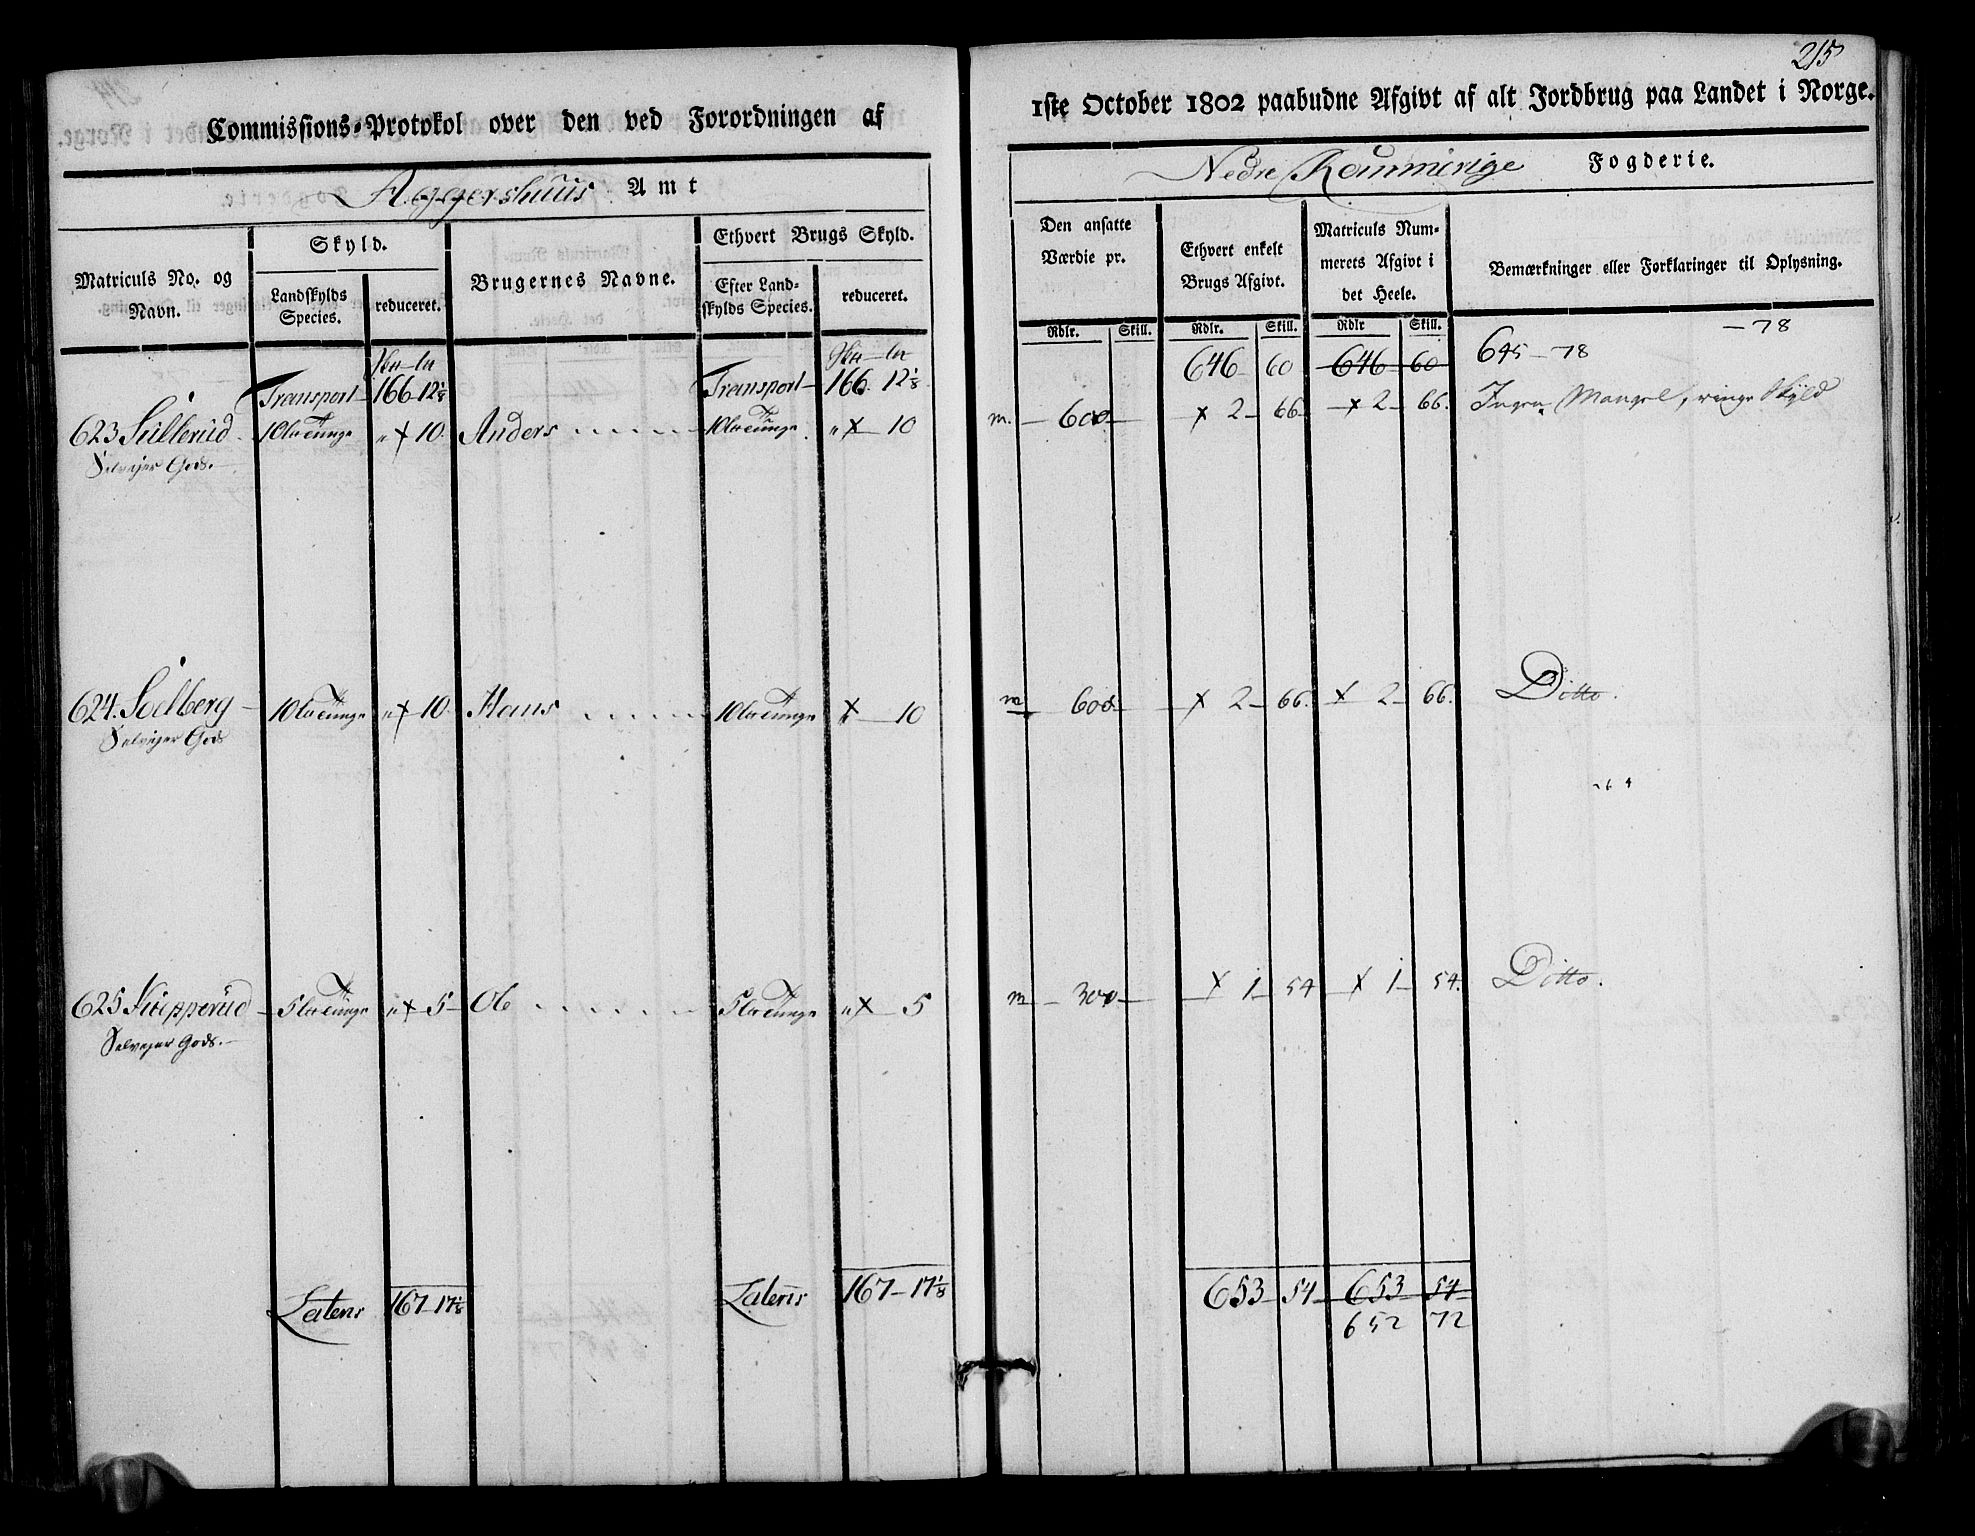 215
Commissions-Protokol over den ved Forordningen af
Aggershuus Amt
Matriculs No. og Navn.
Skyld.
Landskylds Species.
reduceret.
Brugernes Navne.
Ethvert Brugs Skyld.
Efter Landskylds Species.
reduceret.
Transport 166 12 1/8
Transport 166 12 1/8
623 Sullerud 10 10 Anders 10 10
Selvejer Gods.
624. Solberg 10 10 Hans 10 10
Selvejer Gods
625 5 5 Ole 5 5
Selvejer Gods.
Latens 167-17 1/8
Latens 167-17 1/8
1ste October 1802 paabudne Afgivt af alt Jordbrug paa Landet i Norge.
Nedre Rommerige Fogderie.
Den ansatte Værdie pr.
Ethvert enkelt Brugs Afgivt.
Matriculs Nummerets Afgivt i det Heele.
Bemærkninger eller Forklaringer til Oplysning.
Rdlr. Skill. Rdlr. Skill. Rdlr Skill.
-78
646 60 646 60 645-78
m. 600 2 66 2 66. Ingen Mangel, ringe Skyld
m 600 2 66. 2 66. Ditto.
m 300 1 54 1 54. Ditto.
653 54 653 54
652 72